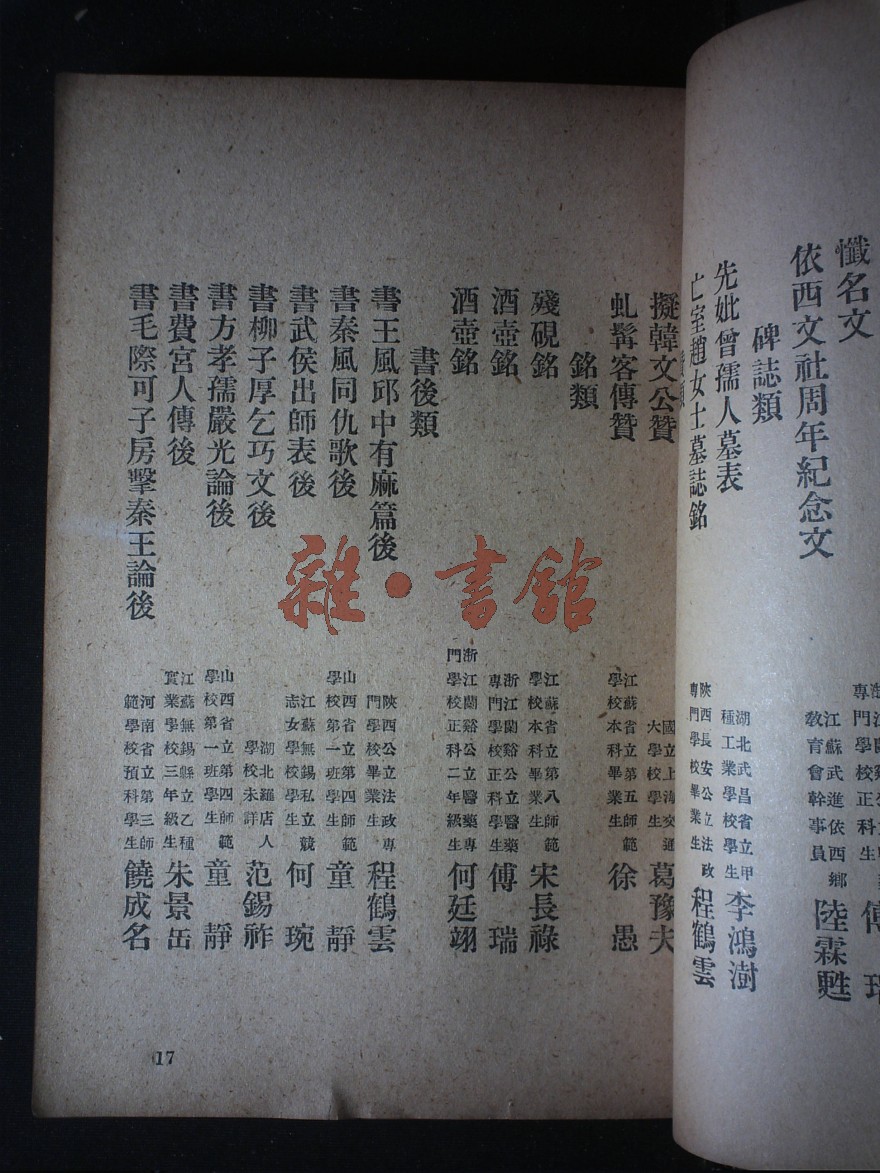 懺名文
依西文社周年紀念文 江蘇武進依西鄉教育會幹事員 陸霖甦
碑誌類
先妣曾孺人墓表 湖北武昌省立甲種工業學校學生 李鴻澍
亡室趙女士墓誌銘 陝西長安公立法政專門學校畢業生 程鶴雲
擬韓文公贊 國立上海交通大學校學生 葛豫夫
虬髯客傳贊 江蘇省立第五師範學校本科畢業生 徐愚
銘類
殘硯銘 江蘇省立第八師範學校本科畢業生 宋長祿
酒壺銘 浙江蘭谿公立醫藥專門學校正科學生 傅瑞
酒壺銘 浙江蘭谿公立醫藥專門學校正科二年級生 何廷翊
書後類
書王風邱中有麻篇後 陝西公立法政專門學校畢業生 程鶴雲
書秦風同仇歌後 山西省立第四師範學校第一班學生 童靜
書武侯出師表後 江蘇無錫私立競志女學校學生 何琬
書柳子厚乞巧文後 湖北羅店人學校未詳 范錫祚
書方孝孺嚴光論後 山西省立第四師範學校第一班學生 童靜
書費宮人傳後 江蘇無錫縣立乙種實業學校三年級生 朱景缶
書毛際可子房擊秦王論後 河南省立第三師範學校預科學生 饒成名
17
雜·書館